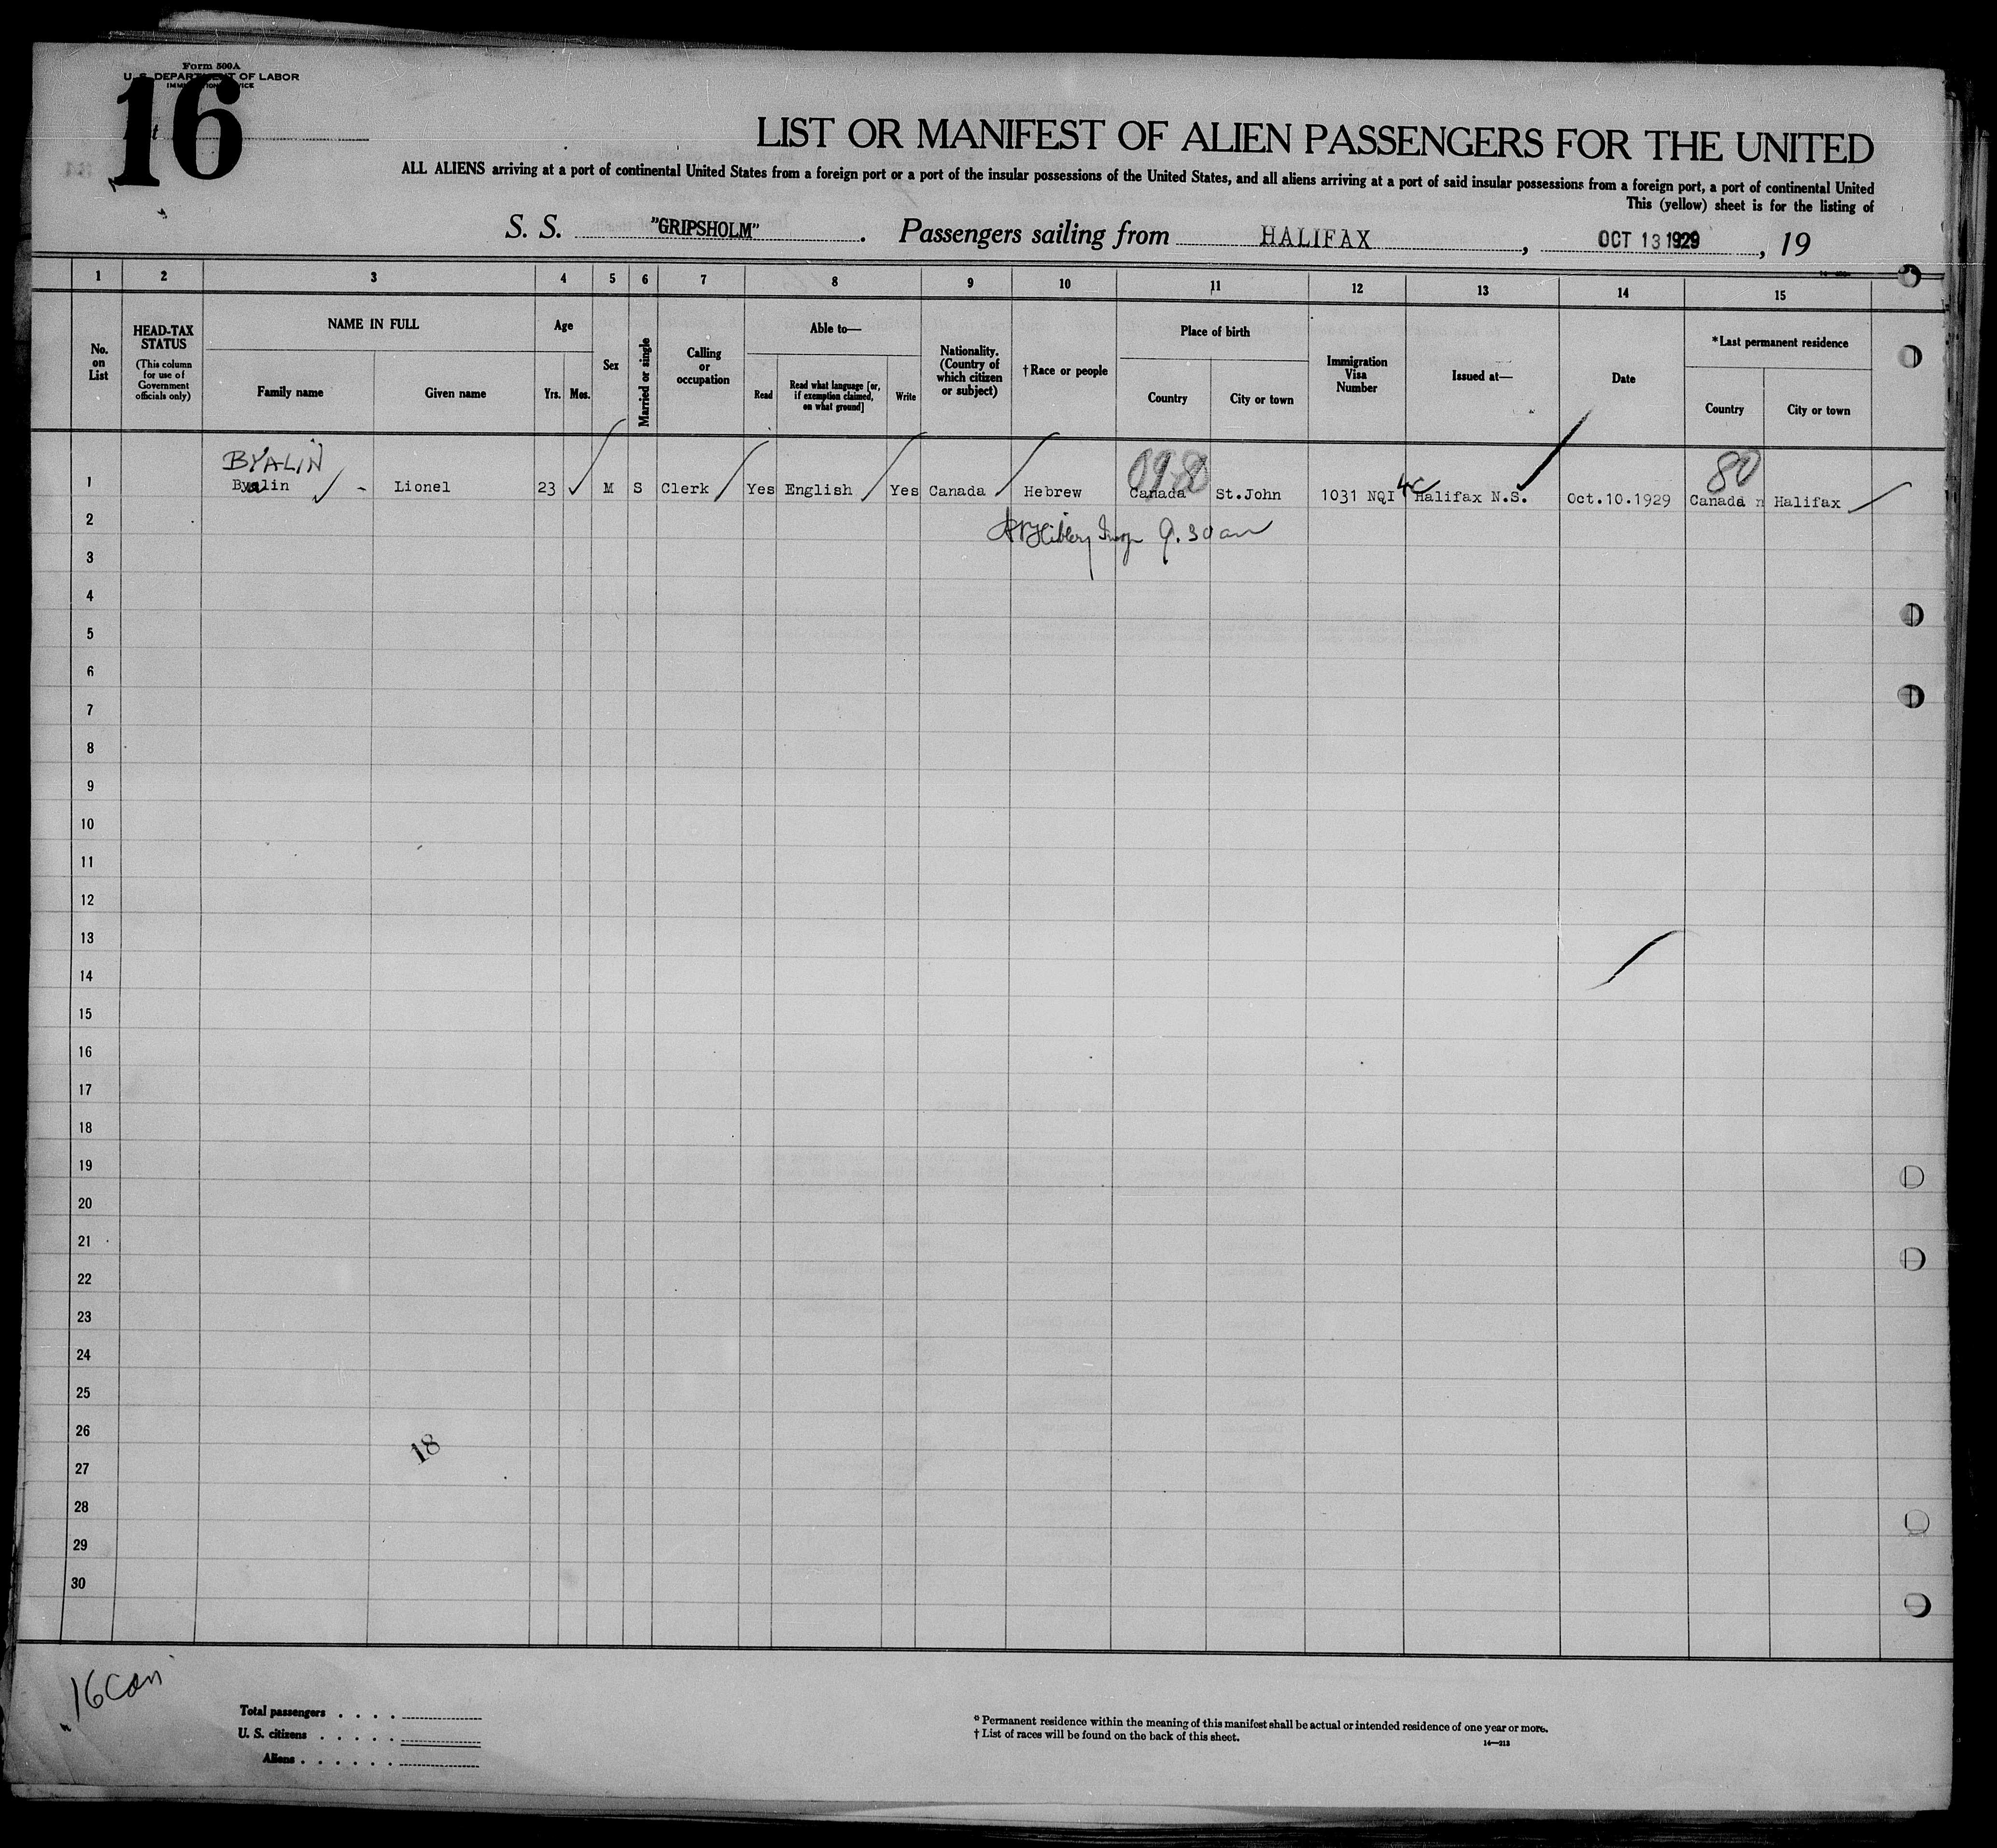 Form 500A
U. S. DEPARTMENT OF LABOR
IMMIGRATION SERVICE
16
LIST OR MANIFEST OF ALIEN PASSENGERS FOR THE UNITED
ALL ALIENS arriving at a port of continental United States from a foreign port or a port of the insular possessions of the United States, and all aliens arriving at a port of said insular possessions from a foreign port, a port of continental United
This (yellow) sheet is for the listing of
S. S. "GRIPSHOLM". Passengers sailing from HALIFAX, OCT 13 1929, 19
1 2 3 4 5 6 7 8 9 10 11 12 13 14 15
No. on List
HEAD-TAX STATUS
(This column for use of Government officials only)
NAME IN FULL
Family name Given name
Age
Yrs. Mos.
Sex
Married or single
Calling or occupation
Able to—
Read
Read what language [or, if exemption claimed, on what ground]
Write
Nationality. (Country of which citizen or subject)
†Race or people
Place of birth
Country City or town
Immigration Visa Number
Issued at—
Date
*Last permanent residence
Country City or town
BYALIN 80
1 Byalin - Lionel 23 M S Clerk Yes English Yes Canada Hebrew Canada St.John 1031 NQI 4c Halifax N.S. Oct.10.1929 Canada n Halifax
2 9.30 am
3
4
5
6
7
8
9
10
11
12
13
14
15
16
17
18
19
20
21
22
23
24
25
26
18
27
28
29
30
16 Can
Total passengers . . . .
U. S. citizens . . . . .
Aliens . . . . . .
* Permanent residence within the meaning of this manifest shall be actual or intended residence of one year or more.
† List of races will be found on the back of this sheet.
14—213